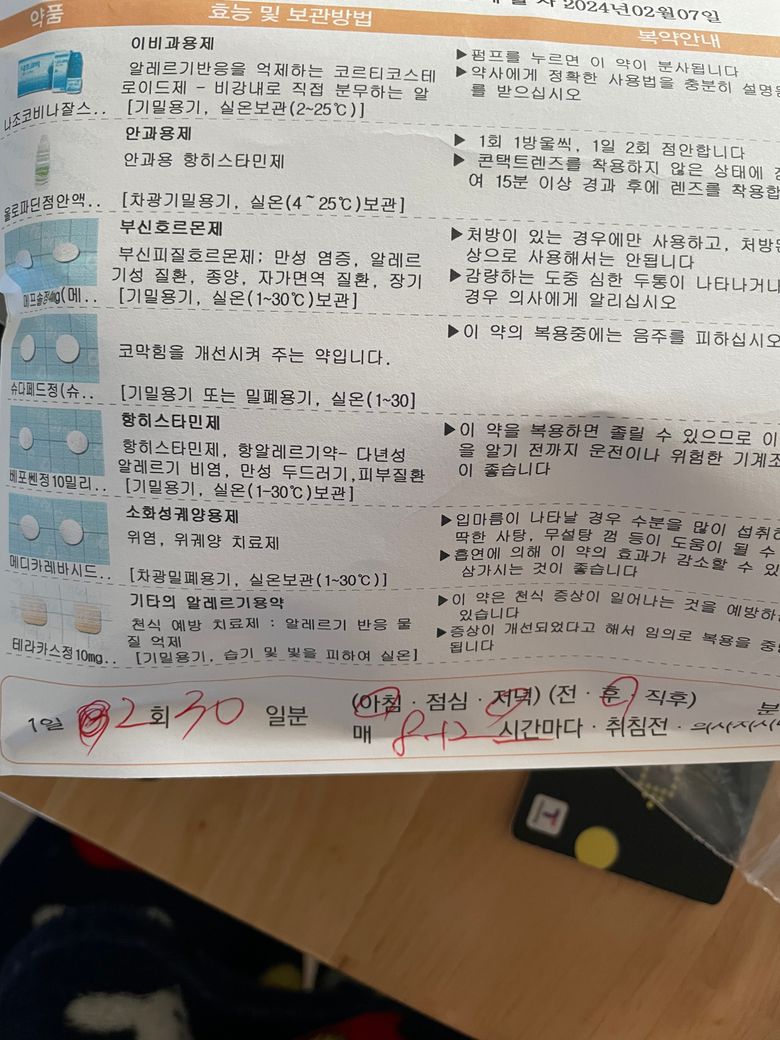 2024년02월07일
약품 효능 및 보관방법 복약안내
이비과용제
알레르기반응을 억제하는 코르티코스테
로이드제 - 비강내로 직접 분무하는 알
[기밀용기, 실온보관(2~25℃)]
나조코비나잘스..
▶펌프를 누르면 이 약이 분사됩니다
▶약사에게 정확한 사용법을 충분히 설명
를 받으십시오
안과용제
안과용 항히스타민제
[차광기밀용기, 실온(4~25℃)보관]
올로파딘점안액..
▶ 1회 1방울씩, 1일 2회 점안합니다
▶ 콘택트렌즈를 착용하지 않은 상태에
여 15분 이상 경과 후에 렌즈를 착용합
부신호르몬제
부신피질호르몬제; 만성 염증, 알레르
기성 질환, 종양, 자가면역 질환, 장기
[기밀용기, 실온(1~30℃)보관]
메프솔정4mg(메..
▶처방이 있는 경우에만 사용하고, 처방된
상으로 사용해서는 안됩니다
▶감량하는 도중 심한 두통이 나타나거나
경우 의사에게 알리십시오
코막힘을 개선시켜 주는 약입니다.
[기밀용기 또는 밀폐용기, 실온(1~30]
슈다페드정(슈..
▶이 약의 복용중에는 음주를 피하십시오
항히스타민제
항히스타민제, 항알레르기약- 다년성
알레르기 비염, 만성 두드러기,피부질환
[기밀용기, 실온(1-30℃)보관]
베포쎈정10밀리..
▶이 약을 복용하면 졸릴 수 있으므로 이
을 알기 전까지 운전이나 위험한 기계조
이 좋습니다
소화성궤양용제
위염, 위궤양 치료제
[차광밀폐용기, 실온보관(1~30℃)]
메디카레바시드..
▶입마름이 나타날 경우 수분을 많이 섭취하
딱한 사탕, 무설탕 껌 등이 도움이 될 수
▶흡연에 의해 이 약의 효과가 감소할 수 있
삼가시는 것이 좋습니다
기타의 알레르기용약
천식 예방 치료제 : 알레르기 반응 물
질 억제
[기밀용기, 습기 및 빛을 피하여 실온]
테라카스정10mg..
▶이 약은 천식 증상이 일어나는 것을 예방하는
있습니다
▶증상이 개선되었다고 해서 임의로 복용을 중
됩니다
1일 2회 30 일분 (아침 · 점심 · 저녁) (전 · 후 · 직후) 분
매 8-12 시간마다 · 취침전 · 의사지시